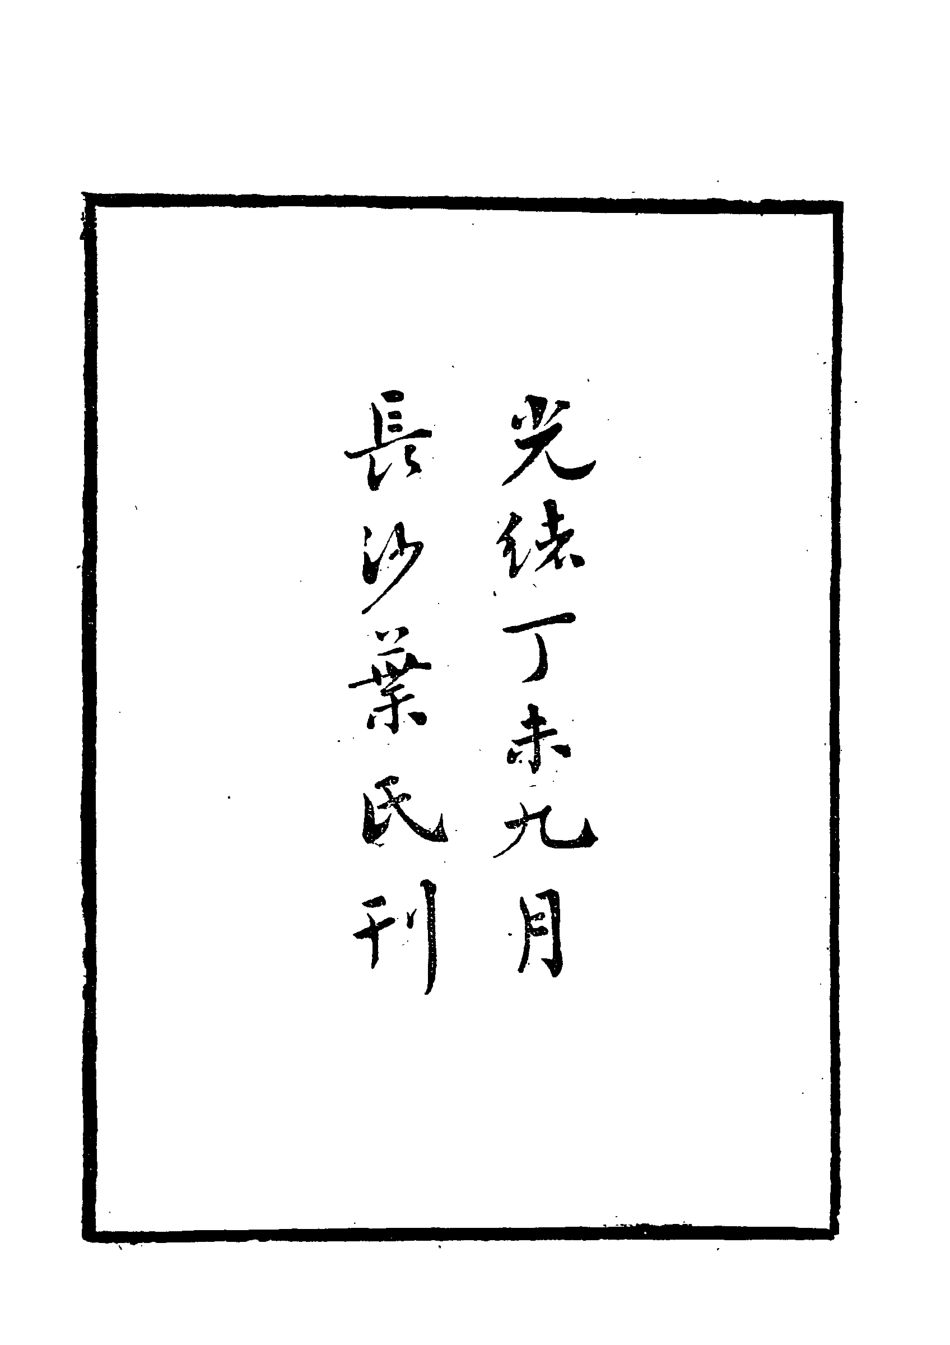 光緒丁未九月
長沙葉氏刊